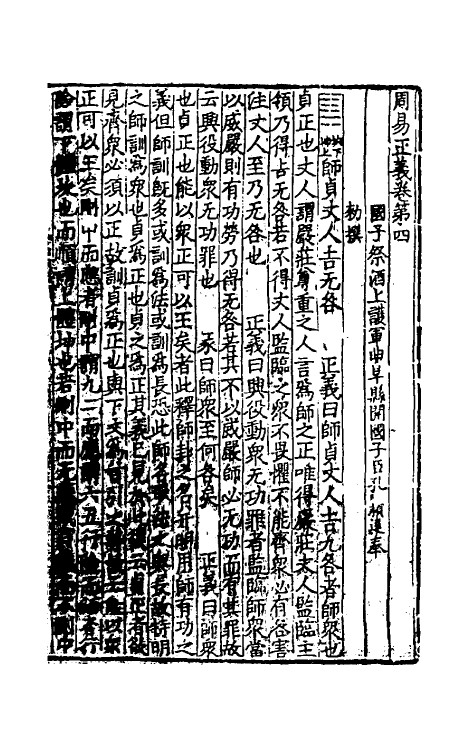 周易正義卷第四
國子祭酒上護軍曲阜縣開國子臣孔穎達奉
勑撰
師貞丈人吉无咎　正義曰師貞丈人吉无咎者師衆也
貞正也丈人謂嚴莊尊重之人言爲師之正唯得嚴莊丈人監臨主
領乃得吉无咎若不得丈人監臨之衆不畏懼不能齊衆必有咎害
注丈人至乃无咎也　正義曰興役動衆无功罪者監臨師衆當
以威嚴則有功勞乃得无咎若其不以威嚴師必无功而有其罪故
云興役動衆无功罪也　彖曰師衆至何咎矣　正義曰師衆
也貞正也能以衆正可以王矣者此釋師卦之名并明用師有功之
義但師訓既多或訓爲法或訓爲長恐此師名取法之與長故特明
之師訓爲衆也貞爲正也貞之爲正其義已見於此復云貞正者欲
見齊衆必須以正故訓貞爲正也與下文爲首引之
正可以王矣剛中而應者剛中謂九二而應謂六五行險而順者行
險謂下體坎也而順謂上體坤也若剛中而无